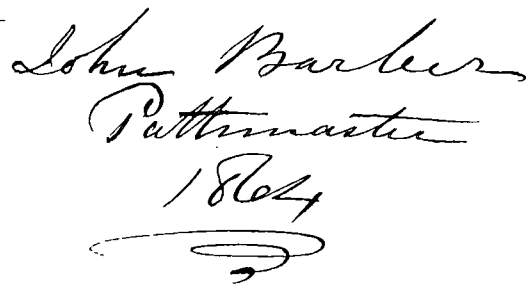 John Barber
Pathmaster
1864